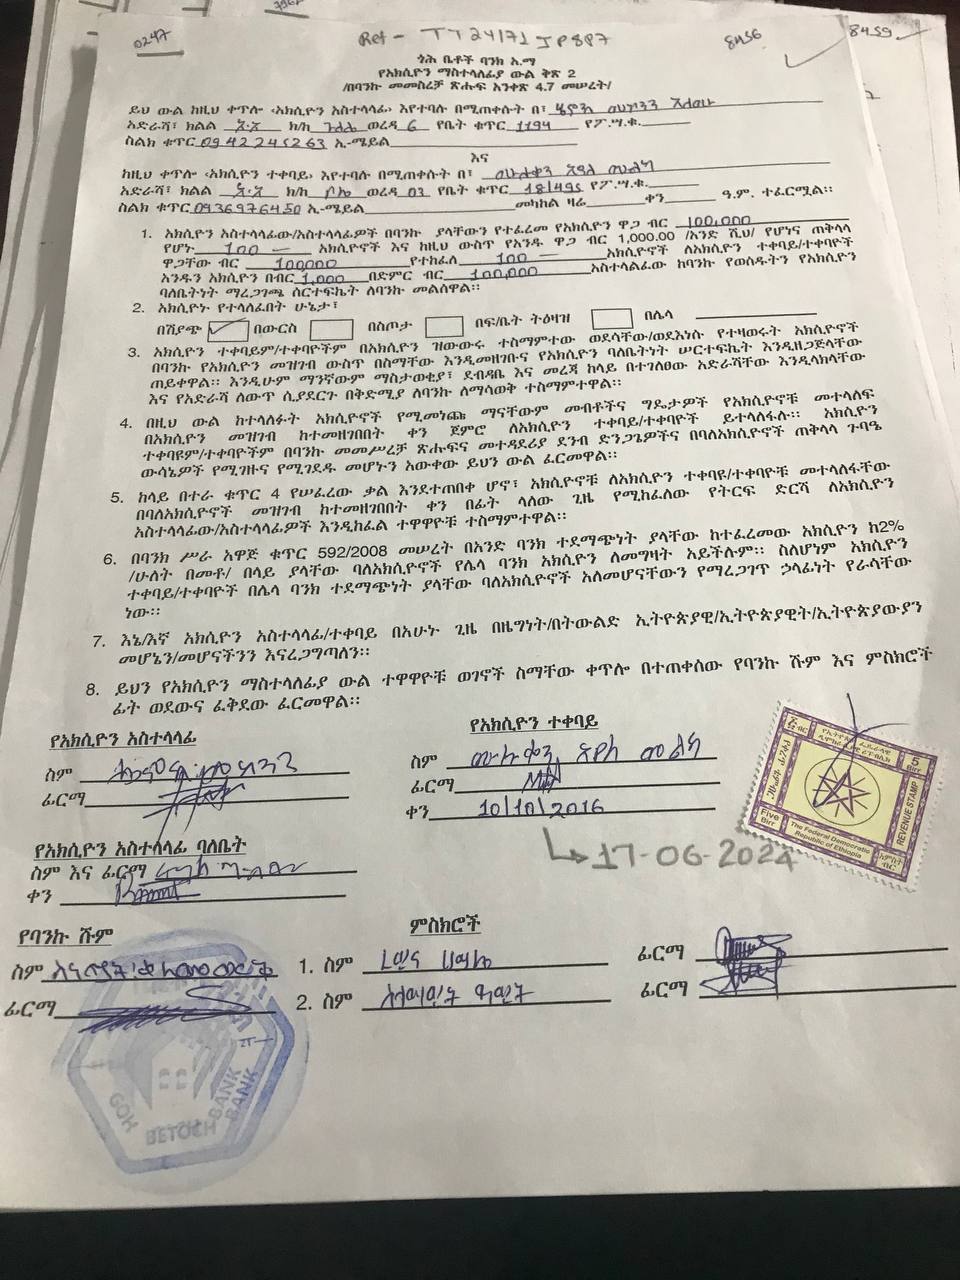 0247
Ref - TT24171JP887
8456
8459
ጎሕ ቤቶች ባንክ አ.ማ
የአክሲዮን ማስተላለፊያ ውል ቅጽ 2
/በባንኩ መመስረቻ ጽሑፍ አንቀጽ 4.7 መሠረት/
ይህ ውል ከዚህ ቀጥሎ ‹አክሲዮን አስተላላፊ› እየተባሉ በሚጠቀሱት በ፣
አድራሻ፣ ክልል አ.አ ክ/ከ ጉለሌ ወረዳ 6 የቤት ቁጥር 1194 የፖ.ሣ.ቁ.
ስልክ ቁጥር 0942245263 ኢ-ሜይል
እና
ከዚህ ቀጥሎ ‹አክሲዮን ተቀባይ› እየተባሉ በሚጠቀሱት በ፣ ሙሉቀን አዳለ መልካ
አድራሻ፣ ክልል አ.አ ክ/ከ ቦሌ ወረዳ 03 የቤት ቁጥር 18/495 የፖ.ሣ.ቁ.
ስልክ ቁጥር 0936976450 ኢ-ሜይል መካከል ዛሬ ቀን ዓ.ም. ተፈርሟል።
1. አክሲዮን አስተላላፊው/አስተላላፊዎች በባንኩ ያላቸውን የተፈረመ የአክሲዮን ዋጋ ብር 100,000
የሆኑ 100 — አክሲዮኖች እና ከዚህ ውስጥ የአንዱ ዋጋ ብር 1,000.00 /አንድ ሺህ/ የሆነና ጠቅላላ
ዋጋቸው ብር 100000 የተከፈለ 100 — አክሲዮኖች ለአክሲዮን ተቀባይ/ተቀባዮች
አንዱን አክሲዮን በብር 1,000 በድምር ብር 100,000 አስተላልፈው ከባንኩ የወሰዱትን የአክሲዮን
ባለቤትነት ማረጋገጫ ሰርተፍኬት ለባንኩ መልሰዋል።
2. አክሲዮኑ የተላለፈበት ሁኔታ፣
በሽያጭ ✓ በውርስ በስጦታ በፍ/ቤት ትዕዛዝ በሌላ
3. አክሲዮን ተቀባይም/ተቀባዮችም በአክሲዮን ዝውውሩ ተስማምተው ወደሳቸው/ወደእነሱ የተዛወሩት አክሲዮኖች
በባንኩ የአክሲዮን መዝገብ ውስጥ በስማቸው እንዲመዘገቡና የአክሲዮን ባለቤትነት ሠርተፍኬት እንዲዘጋጅላቸው
ጠይቀዋል። እንዲሁም ማንኛውም ማስታወቂያ፣ ደብዳቤ እና መረጃ ከላይ በተገለፀው አድራሻቸው እንዲላክላቸው
እና የአድራሻ ለውጥ ሲያደርጉ በቅድሚያ ለባንኩ ለማሳወቅ ተስማምተዋል።
4. በዚህ ውል ከተላለፉት አክሲዮኖች የሚመነጩ ማናቸውም መብቶችና ግዴታዎች የአክሲዮኖቹ መተላለፍ
በአክሲዮን መዝገብ ከተመዘገበበት ቀን ጀምሮ ለአክሲዮን ተቀባይ/ተቀባዮች ይተላለፋሉ። አክሲዮን
ተቀባዩም/ተቀባዮችም በባንኩ መመሥረቻ ጽሑፍና መተዳደሪያ ደንብ ድንጋጌዎችና በባለአክሲዮኖች ጠቅላላ ጉባዔ
ውሳኔዎች የሚገዙና የሚገደዱ መሆኑን አውቀው ይህን ውል ፈርመዋል።
5. ከላይ በተራ ቁጥር 4 የሠፈረው ቃል እንደተጠበቀ ሆኖ፣ አክሲዮኖቹ ለአክሲዮን ተቀባዩ/ተቀባዮቹ መተላለፋቸው
በባለአክሲዮኖች መዝገብ ከተመዘገበበት ቀን በፊት ላለው ጊዜ የሚከፈለው የትርፍ ድርሻ ለአክሲዮን
አስተላላፊው/አስተላላፊዎች እንዲከፈል ተዋዋዮቹ ተስማምተዋል።
6. በባንክ ሥራ አዋጅ ቁጥር 592/2008 መሠረት በአንድ ባንክ ተደማጭነት ያላቸው ከተፈረመው አክሲዮን ከ2%
/ሁለት በመቶ/ በላይ ያላቸው ባለአክሲዮኖች የሌላ ባንክ አክሲዮን ለመግዛት አይችሉም። ስለሆነም አክሲዮን
ተቀባይ/ተቀባዮች በሌላ ባንክ ተደማጭነት ያላቸው ባለአክሲዮኖች አለመሆናቸውን የማረጋገጥ ኃላፊነት የራሳቸው
ነው።
7. እኔ/እኛ አክሲዮን አስተላላፊ/ተቀባይ በአሁኑ ጊዜ በዜግነት/በትውልድ ኢትዮጵያዊ/ኢትዮጵያዊት/ኢትዮጵያውያን
መሆኔን/መሆናችንን እናረጋግጣለን።
8. ይህን የአክሲዮን ማስተላለፊያ ውል ተዋዋዮቹ ወገኖች ስማቸው ቀጥሎ በተጠቀሰው የባንኩ ሹም እና ምስክሮች
ፊት ወደውና ፈቅደው ፈርመዋል።
የአክሲዮን አስተላላፊ
ስም
ፊርማ
የአክሲዮን ተቀባይ
ስም ሙሉቀን አዳለ መልካ
ፊርማ
ቀን 10/10/2016
17-06-2024
የአክሲዮን አስተላላፊ ባለቤት
ስም እና ፊርማ
ቀን
የባንኩ ሹም
ስም
ፊርማ
ምስክሮች
1. ስም ፊርማ
2. ስም ፊርማ
5 Birr
REVENUE STAMP
Five Birr
The Federal Democratic Republic of Ethiopia
አምስት ብር
GOH BETOCH BANK
BANK